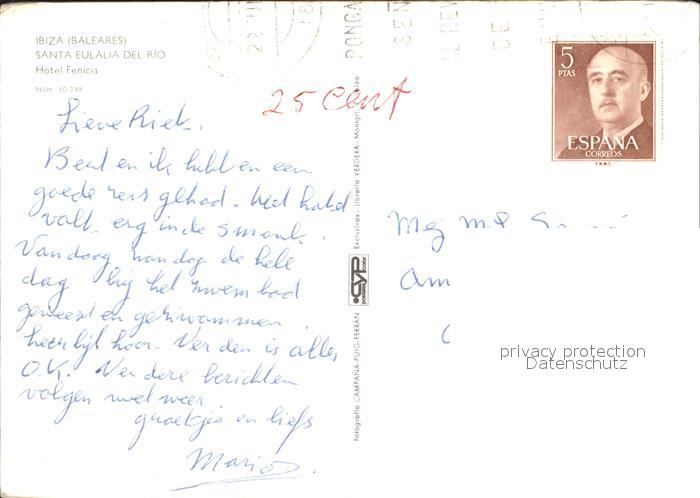 IBIZA (BALEARES)
SANTA EULALIA DEL RÍO
Hotel Fenicia
Núm. 50.248
PONGA
SEN
DE
5
PTAS
ESPAÑA
CORREOS
F.N.M.T.
25 cent
Lieve Riek.
Bert en ik hebben een
goede reis gehad. Het hotel
valt erg in de smaak.
Vandaag vandag de hele
dag bij het zwembad
geweest en gezwommen
heerlijk hoor. Verder is alles
O.K. Verdere berichten
volgen wel weer.
groetjes en liefs
Marios.
Exclusivas: Librería VERDERA - Montgrí Ibiza
CYP
Fotografía CAMPAÑA-PUIG-FERRÁN
Mej
Am
privacy protection
Datenschutz